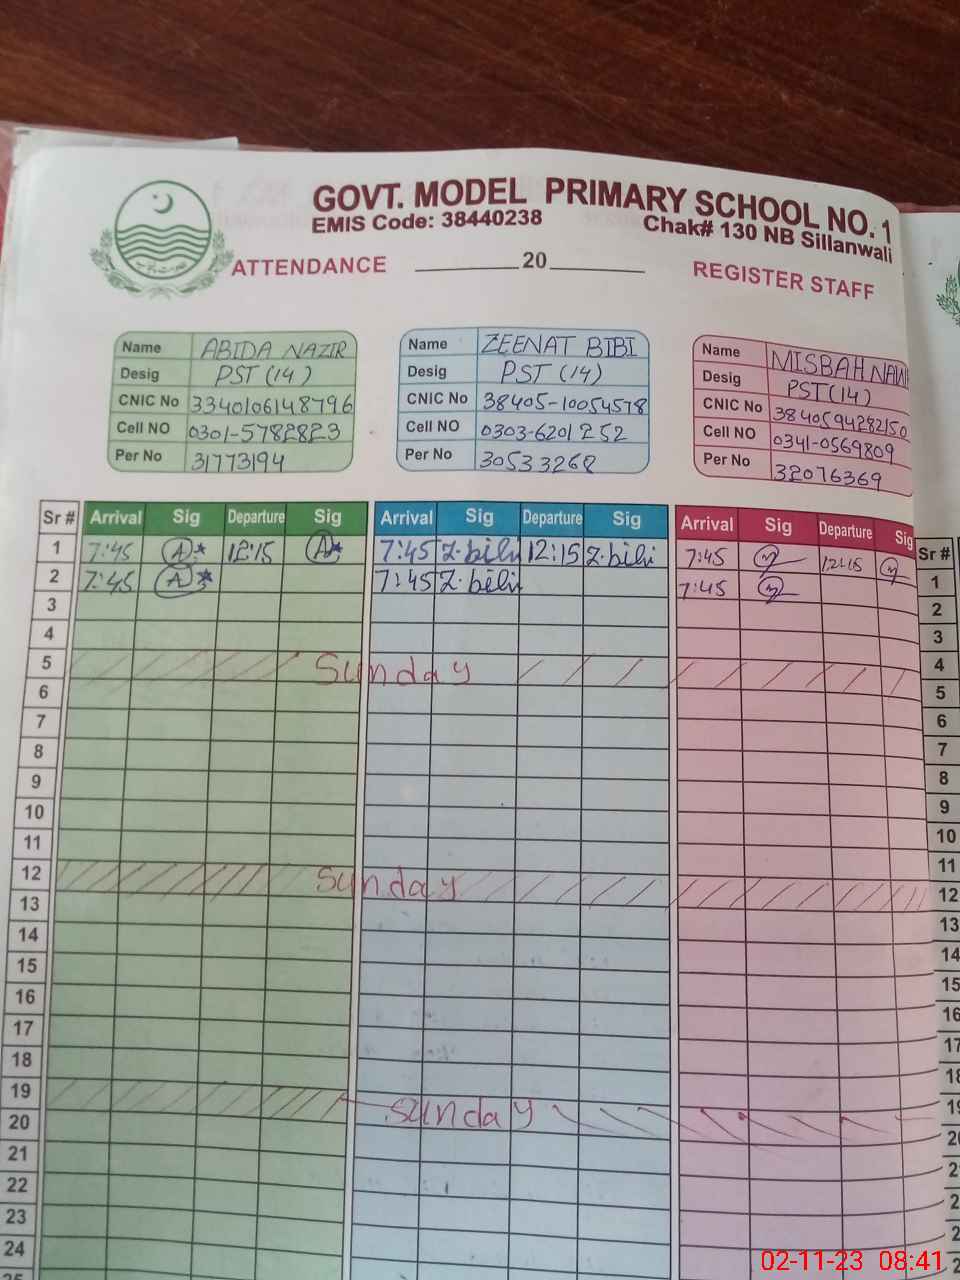 GOVT. MODEL PRIMARY SCHOOL NO. 1
EMIS Code: 38440238 Chak# 130 NB Sillanwali
ATTENDANCE ________20________ REGISTER STAFF
Name ABIDA NAZIR
Desig PST (14)
CNIC No 3340106148796
Cell NO 0301-5782823
Per No 31773194
Name ZEENAT BIBI
Desig PST (14)
CNIC No 38405-10054578
Cell NO 0303-6201252
Per No 30533268
Name MISBAH
Desig PST (14)
CNIC No 3840594282150
Cell NO 0341-0569809
Per No 32076369
Sr # Arrival Sig Departure Sig Arrival Sig Departure Sig Arrival Sig Departure Sig Sr #
1 7:45 A* 12:15 A* 7:45 Z.bibi 12:15 Z.bibi 7:45 12:15 1
2 7:45 A* 7:45 Z.bibi 7:45 2
3 3
4 4
5 Sunday 5
6 6
7 7
8 8
9 9
10 10
11 11
12 Sunday 12
13 13
14 14
15 15
16 16
17 17
18 18
19 Sunday 19
20
21
22
23
24
02-11-23 08:41